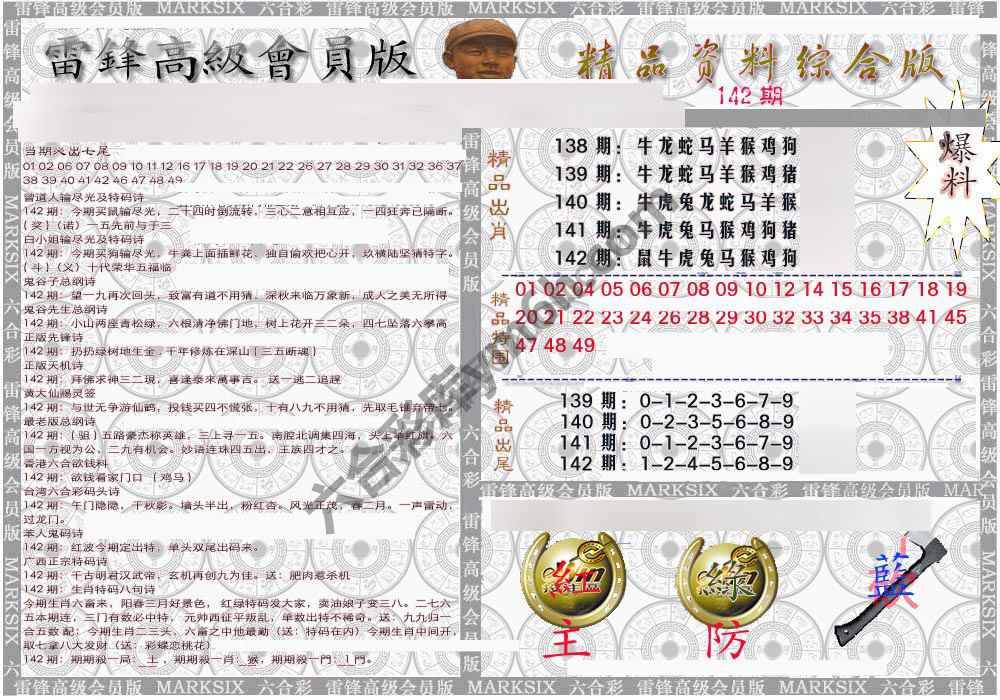 雷锋高级会员版 MARKSIX 六合彩 雷锋高级会员版 MARKSIX 六合彩 雷锋高级会员版
雷鋒高級會員版
精品资料综合版
142 期
爆料
当期灵出七尾
01 02 06 07 08 09 10 11 12 16 17 18 19 20 21 22 26 27 28 29 30 31 32 36 37
38 39 40 41 42 46 47 48 49
曾道人输尽光及特码诗
142 期：今期买鼠输尽光，二十四时倒流转，三心二意相互应，一四狂奔已隔断。
{ 奖}（诺）一五先前与于三
白小姐输尽光及特码诗
142 期：今期买狗输尽光，牛粪上面插鲜花、独自偷欢把心开，玖横陆坚猜特字。
{ 斗}（义）十代荣华五福临
鬼谷子总纲诗
142 期：望一九再次回头，致富有道不用猜，深秋来临万象新，成人之美无所得
鬼谷先生总纲诗
142 期：小山两座青松绿，六根清净佛门地，树上花开三二朵，四七坠落六攀高
正版先锋诗
142 期：扔扔绿树地生金，千年修炼在深山{ 三五断魂}
正版天机诗
142 期：拜佛求神三二現，喜逢泰來萬事吉。送一逃二追趕
黄大仙赐灵签
142 期：与世无争游仙鹤，投钱买四不慌张，十有八九不用猜，先取毛铺弃带七。
最老版总纲诗
142 期：{ 驵} 五路豪杰称英雄，三上寻一五。南腔北调集四海，头上举红旗。六
国一万视为公，二九有机会。妙语连珠四五出，王族四才之。
香港六合欲钱料
142 期：欲钱看家门口 { 鸡马}
台湾六合彩码头诗
142 期：午门隐隐，千秋影。墙头半出，粉红杏。风光正茂，春二月。一声雷动，
过龙门。
苯人鬼码诗
142 期：红波今期定出特，单头双尾出码来。
广西正宗特码诗
142 期：千古明君汉武帝，玄机再创九为佳。送：肥肉惹杀机
142 期：生肖特码八句诗
今期生肖六畜来，阳春三月好景色， 红绿特码发大家， 卖油娘子变三八。二七六
五本期连，三门有数必中特， 元帅西征平叛乱，单数出特不稀奇。送：九九归一
合五数 配：今期生肖二三头，六畜之中他最勐（送：特码在内）今期生肖中间开，
取七拿八大发财（送：彩蝶恋桃花）
142 期：期期殺一局：土 ，期期殺一肖：猴，期期殺一門：1 門。
精品出肖
138 期：牛龙蛇马羊猴鸡狗
139 期：牛龙蛇马羊猴鸡猪
140 期：牛虎兔龙蛇马羊猴
141 期：牛虎兔马猴鸡狗猪
142 期：鼠牛虎兔马猴鸡狗
精品特围
01 02 04 05 06 07 08 09 10 12 14 15 16 17 18 19
20 21 22 23 24 26 28 29 30 32 33 34 35 38 41 45
47 48 49
精品出尾
139 期：0-1-2-3-6-7-9
140 期：0-2-3-5-6-8-9
141 期：0-1-2-3-6-7-9
142 期：1-2-4-5-6-8-9
雷锋高级会员版 MARKSIX 六合彩 雷锋高级会员版
红
主
綠
防
藍
雷锋高级会员版 MARKSIX 六合彩 雷锋高级会员版 MARKSIX 六合彩 雷锋高级会员版